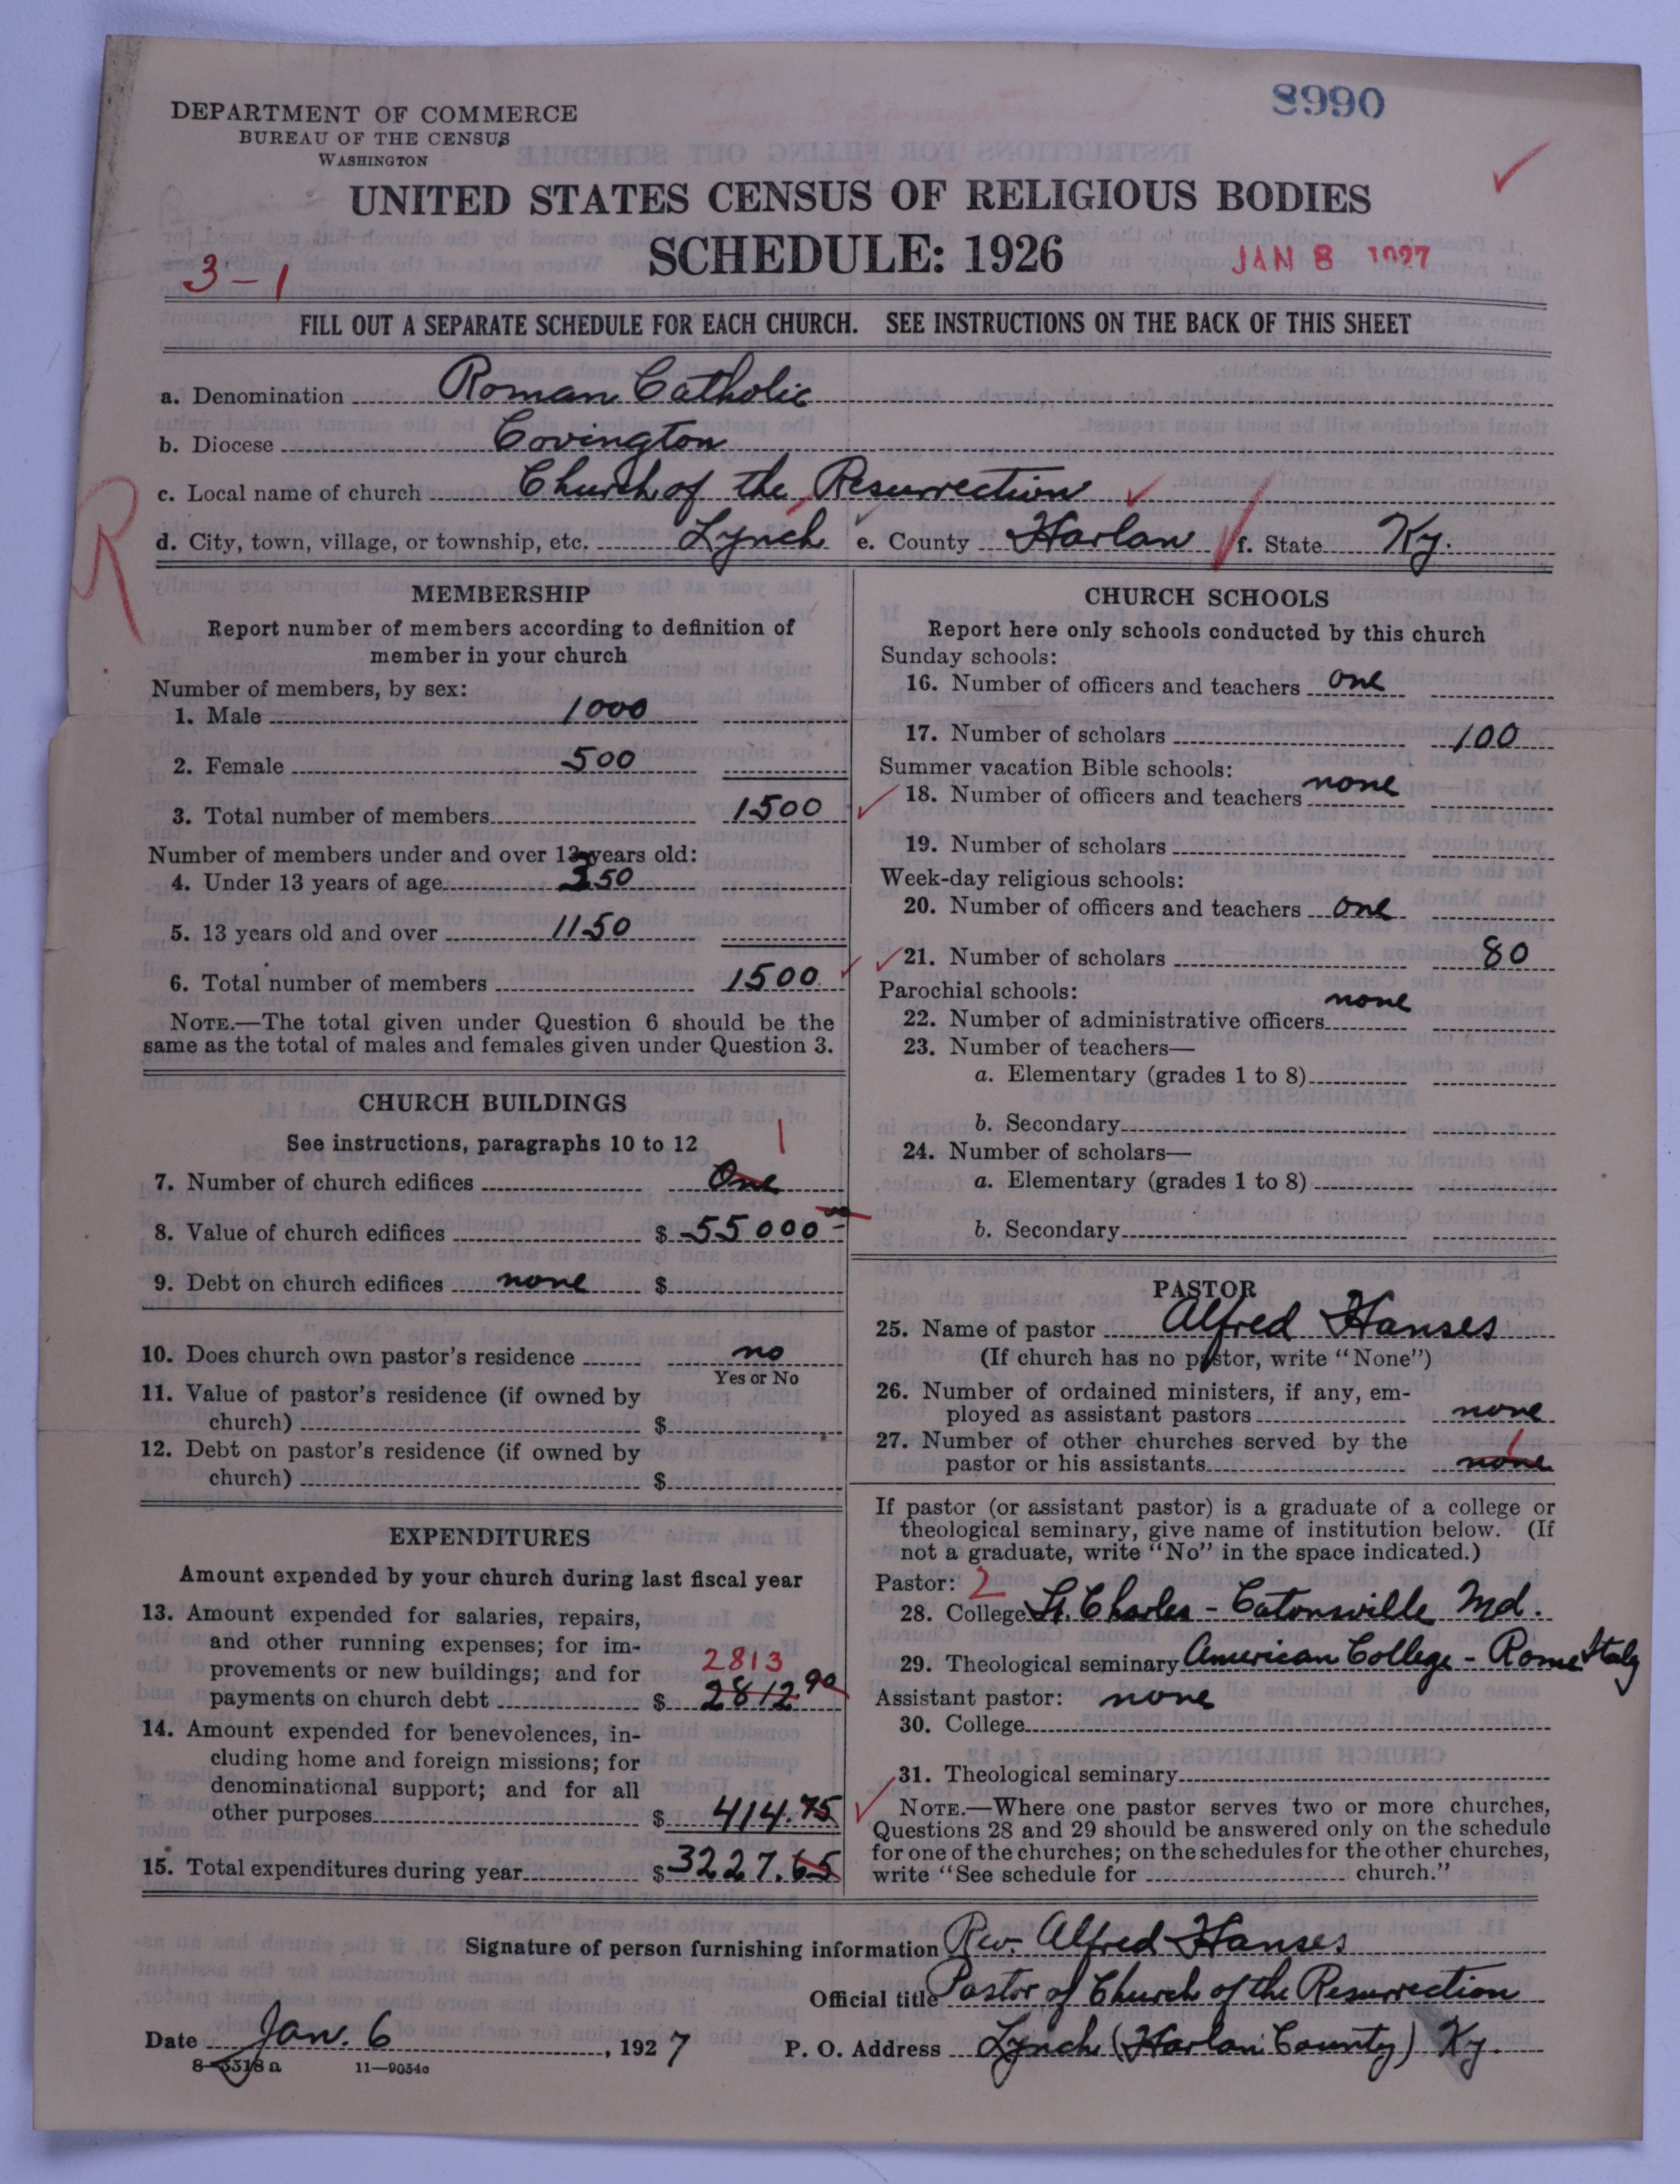 8990
DEPARTMENT OF COMMERCE
BUREAU OF THE CENSUS
WASHINGTON
UNITED STATES CENSUS OF RELIGIOUS BODIES
SCHEDULE: 1926
JAN 8 1927
3-1
FILL OUT A SEPARATE SCHEDULE FOR EACH CHURCH. SEE INSTRUCTIONS ON THE BACK OF THIS SHEET
a. Denomination Roman Catholic
b. Diocese Covington
c. Local name of church Church of the Resurrection
d. City, town, village, or township, etc. Lynch e. County Harlan f. State Ky.
R
MEMBERSHIP
Report number of members according to definition of
member in your church
Number of members, by sex:
1. Male 1000
2. Female 500
3. Total number of members 1500
Number of members under and over 13 years old:
4. Under 13 years of age 350
5. 13 years old and over 1150
6. Total number of members 1500
NOTE.—The total given under Question 6 should be the
same as the total of males and females given under Question 3.
CHURCH BUILDINGS
See instructions, paragraphs 10 to 12
1
7. Number of church edifices One
8. Value of church edifices $ 55000 00
9. Debt on church edifices none $
10. Does church own pastor's residence no
Yes or No
11. Value of pastor's residence (if owned by
church) $
12. Debt on pastor's residence (if owned by
church) $
EXPENDITURES
Amount expended by your church during last fiscal year
13. Amount expended for salaries, repairs,
and other running expenses; for im-
provements or new buildings; and for 2813
payments on church debt $ 2812.90
14. Amount expended for benevolences, in-
cluding home and foreign missions; for
denominational support; and for all
other purposes $ 414.75
15. Total expenditures during year $ 3227.65
CHURCH SCHOOLS
Report here only schools conducted by this church
Sunday schools:
16. Number of officers and teachers one
17. Number of scholars 100
Summer vacation Bible schools:
18. Number of officers and teachers none
19. Number of scholars
Week-day religious schools:
20. Number of officers and teachers one
21. Number of scholars 80
Parochial schools:
22. Number of administrative officers none
23. Number of teachers—
a. Elementary (grades 1 to 8)
b. Secondary
24. Number of scholars—
a. Elementary (grades 1 to 8)
b. Secondary
PASTOR
25. Name of pastor Alfred Hanses
(If church has no pastor, write "None")
26. Number of ordained ministers, if any, em-
ployed as assistant pastors none
27. Number of other churches served by the 1
pastor or his assistants none
If pastor (or assistant pastor) is a graduate of a college or
theological seminary, give name of institution below. (If
not a graduate, write "No" in the space indicated.)
Pastor: 2
28. College St. Charles - Catonsville Md.
29. Theological seminary American College - Rome Italy
Assistant pastor: none
30. College
31. Theological seminary
NOTE.—Where one pastor serves two or more churches,
Questions 28 and 29 should be answered only on the schedule
for one of the churches; on the schedules for the other churches,
write "See schedule for church."
Signature of person furnishing information Rev. Alfred Hanses
Official title Pastor of Church of the Resurrection
Date Jan. 6, 1927 P. O. Address Lynch (Harlan County) Ky.
8-3318a 11—9034c